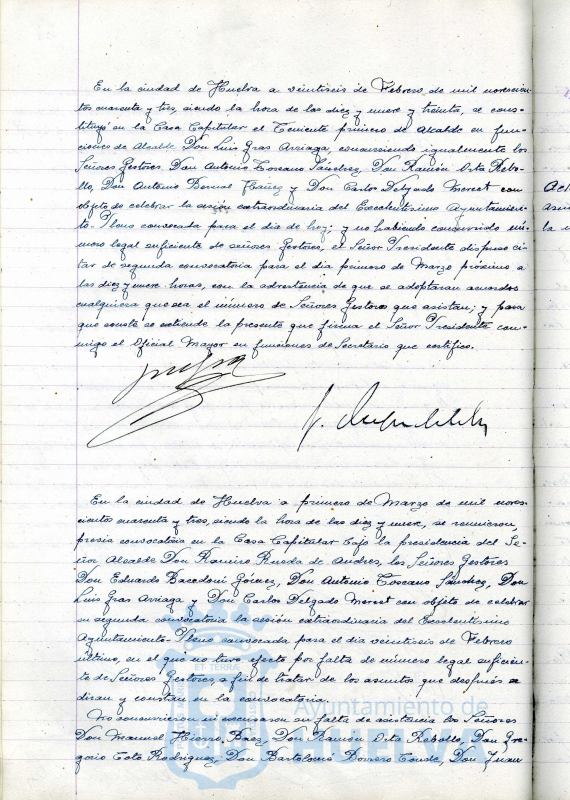 En la ciudad de Huelva a veintiseis de Febrero de mil novecien-
tos cuarenta y tres, siendo la hora de las diez y nueve y treinta, se cons-
tituyó en la Casa Capitular el Teniente primero de Alcalde en fun-
ciones de Alcalde Don Luis Gras Arriaga, concurriendo igualmente los
Señores Gestores Don Antonio Toscano Sánchez, Don Ramón Orta Rebo-
llo, Don Antonio Bernal Ibañez y Don Carlos Delgado Mercet con
objeto de celebrar la sesión extraordinaria del Excelentísimo Ayuntamien-
to Pleno convocada para el día de hoy; y no habiendo concurrido nú-
mero legal suficiente de señores Gestores, el Señor Presidente dispuso ci-
tar de segunda convocatoria para el día primero de Marzo próximo a
las diez y nueve horas, con la advertencia de que se adoptarán acuerdos
cualquiera que sea el número de Señores Gestores que asistan; y para
que conste se extiende la presente que firma el Señor Presidente con-
migo el Oficial Mayor en funciones de Secretario que certifico.
En la ciudad de Huelva a primero de Marzo de mil nove-
cientos cuarenta y tres, siendo la hora de las diez y nueve, se reunieron,
previa convocatoria en la Casa Capitular bajo la presidencia del Se-
ñor Alcalde Don Ramiro Rueda de Andres, los Señores Gestores
Don Eduardo Bacedoni Gómez, Don Antonio Toscano Sánchez, Don
Luis Gras Arriaga y Don Carlos Delgado Mercet con objeto de celebrar
en segunda convocatoria la sesión extraordinaria del Excelentísimo
Ayuntamiento Pleno convocada para el día veintiseis de Febrero
último, en el que no tuvo efecto por falta de número legal suficien-
te de Señores Gestores a fin de tratar de los asuntos que después se
dirán y constan en la convocatoria.
No concurrieron ni excusaron su falta de asistencia los Señores
Don Manuel Hierro Baez, Don Ramón Orta Rebollo, Don Gre-
gorio Toto Rodriguez, Don Bartolomé Borrero Conde, Don Juan
Ayuntamiento de
HUELVA